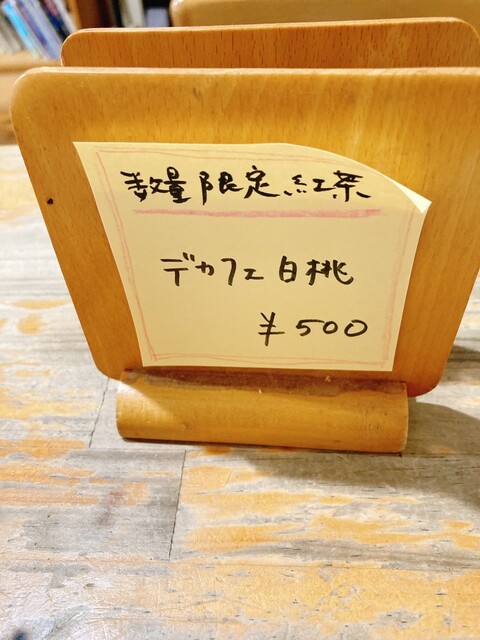 数量限定紅茶
デカフェ白桃
¥500